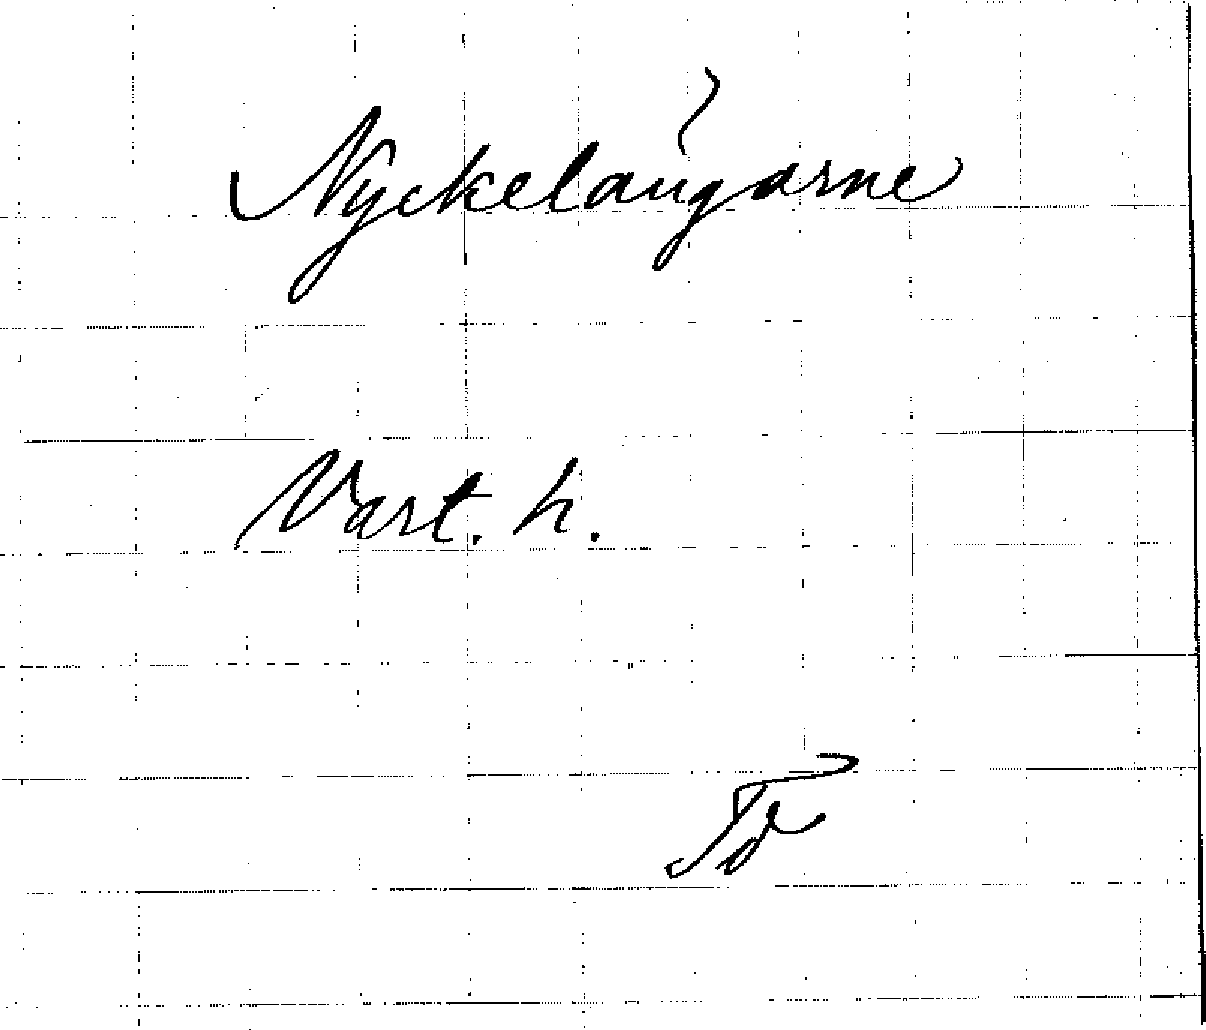 Nyckelängarne
Vart. h.
Td